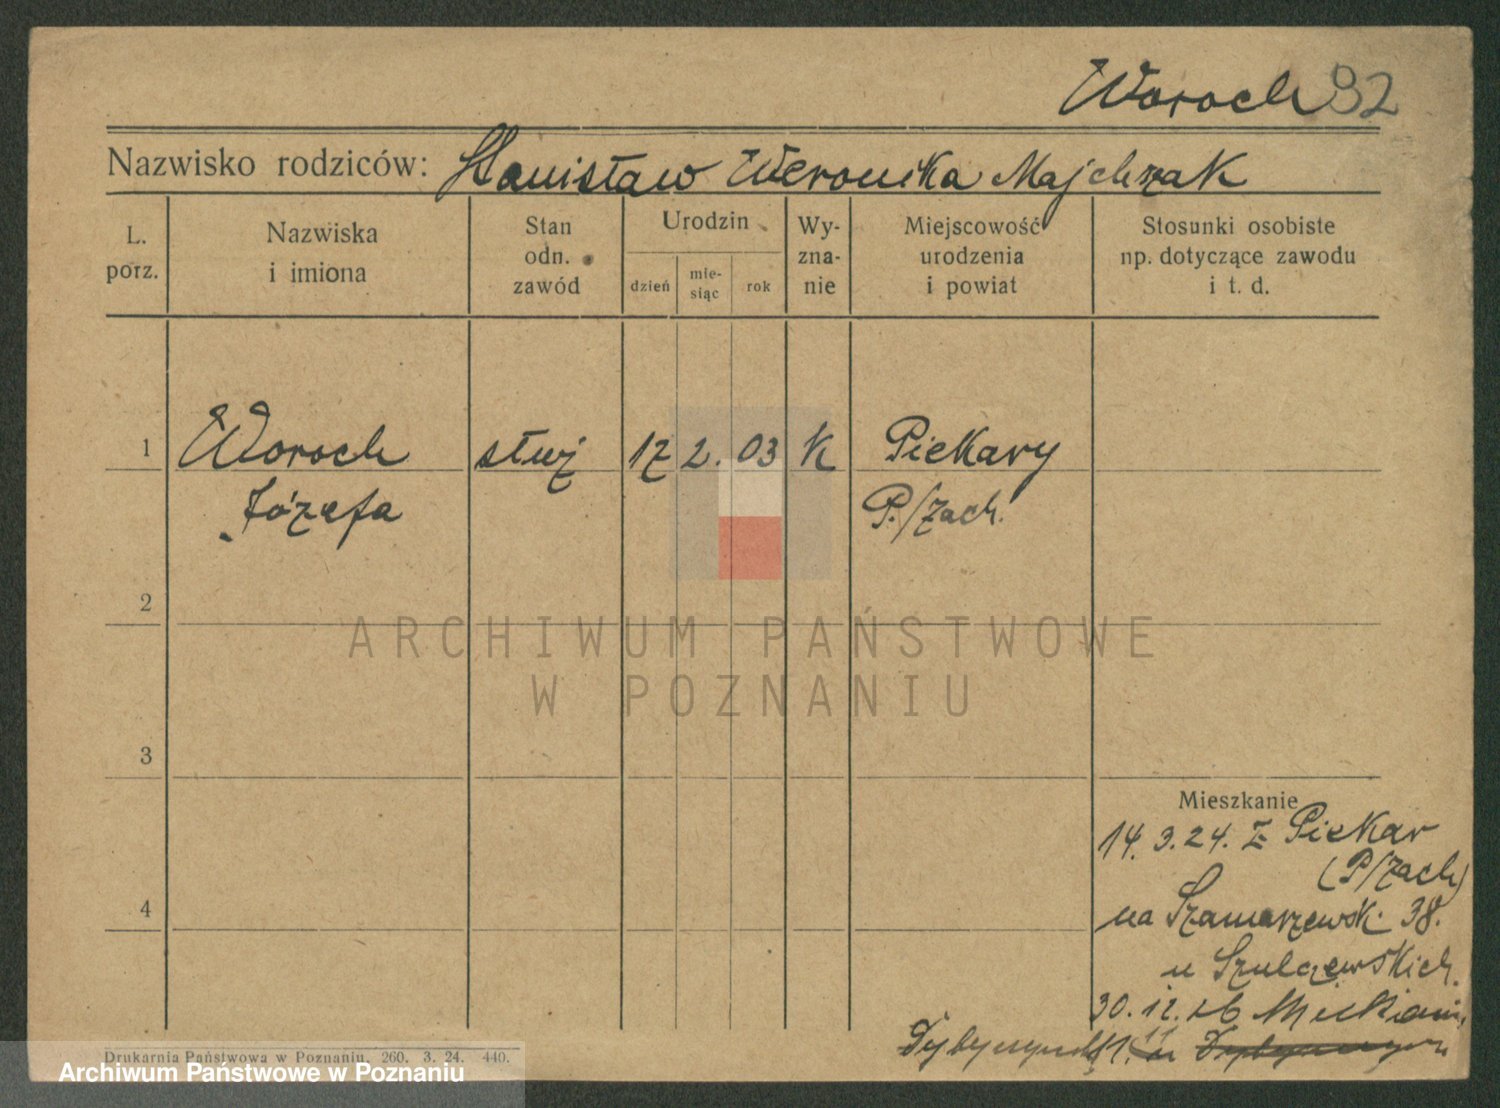 Woroch 92
Nazwisko rodziców: Stanisław Weronika Majchrzak
L. porz.
Nazwiska i imiona
Stan odn. zawód
Urodzin
dzień
mie-
siąc
rok
Wy-
zna-
nie
Miejscowość
urodzenia
i powiat
Stosunki osobiste
np. dotyczące zawodu
i t. d.
1 Woroch służ 17 2. 03 k Piekary
Józefa P./Zach.
2
3
4
Mieszkanie
14. 3. 24. z Piekar
(P/Zach)
na Szamarzewsk. 38.
u Szulczewskich.
30. 12. 26
Drukarnia Państwowa w Poznaniu. 260. 3. 24. 440.
ARCHIWUM PAŃSTWOWE
W POZNANIU
Archiwum Państwowe w Poznaniu